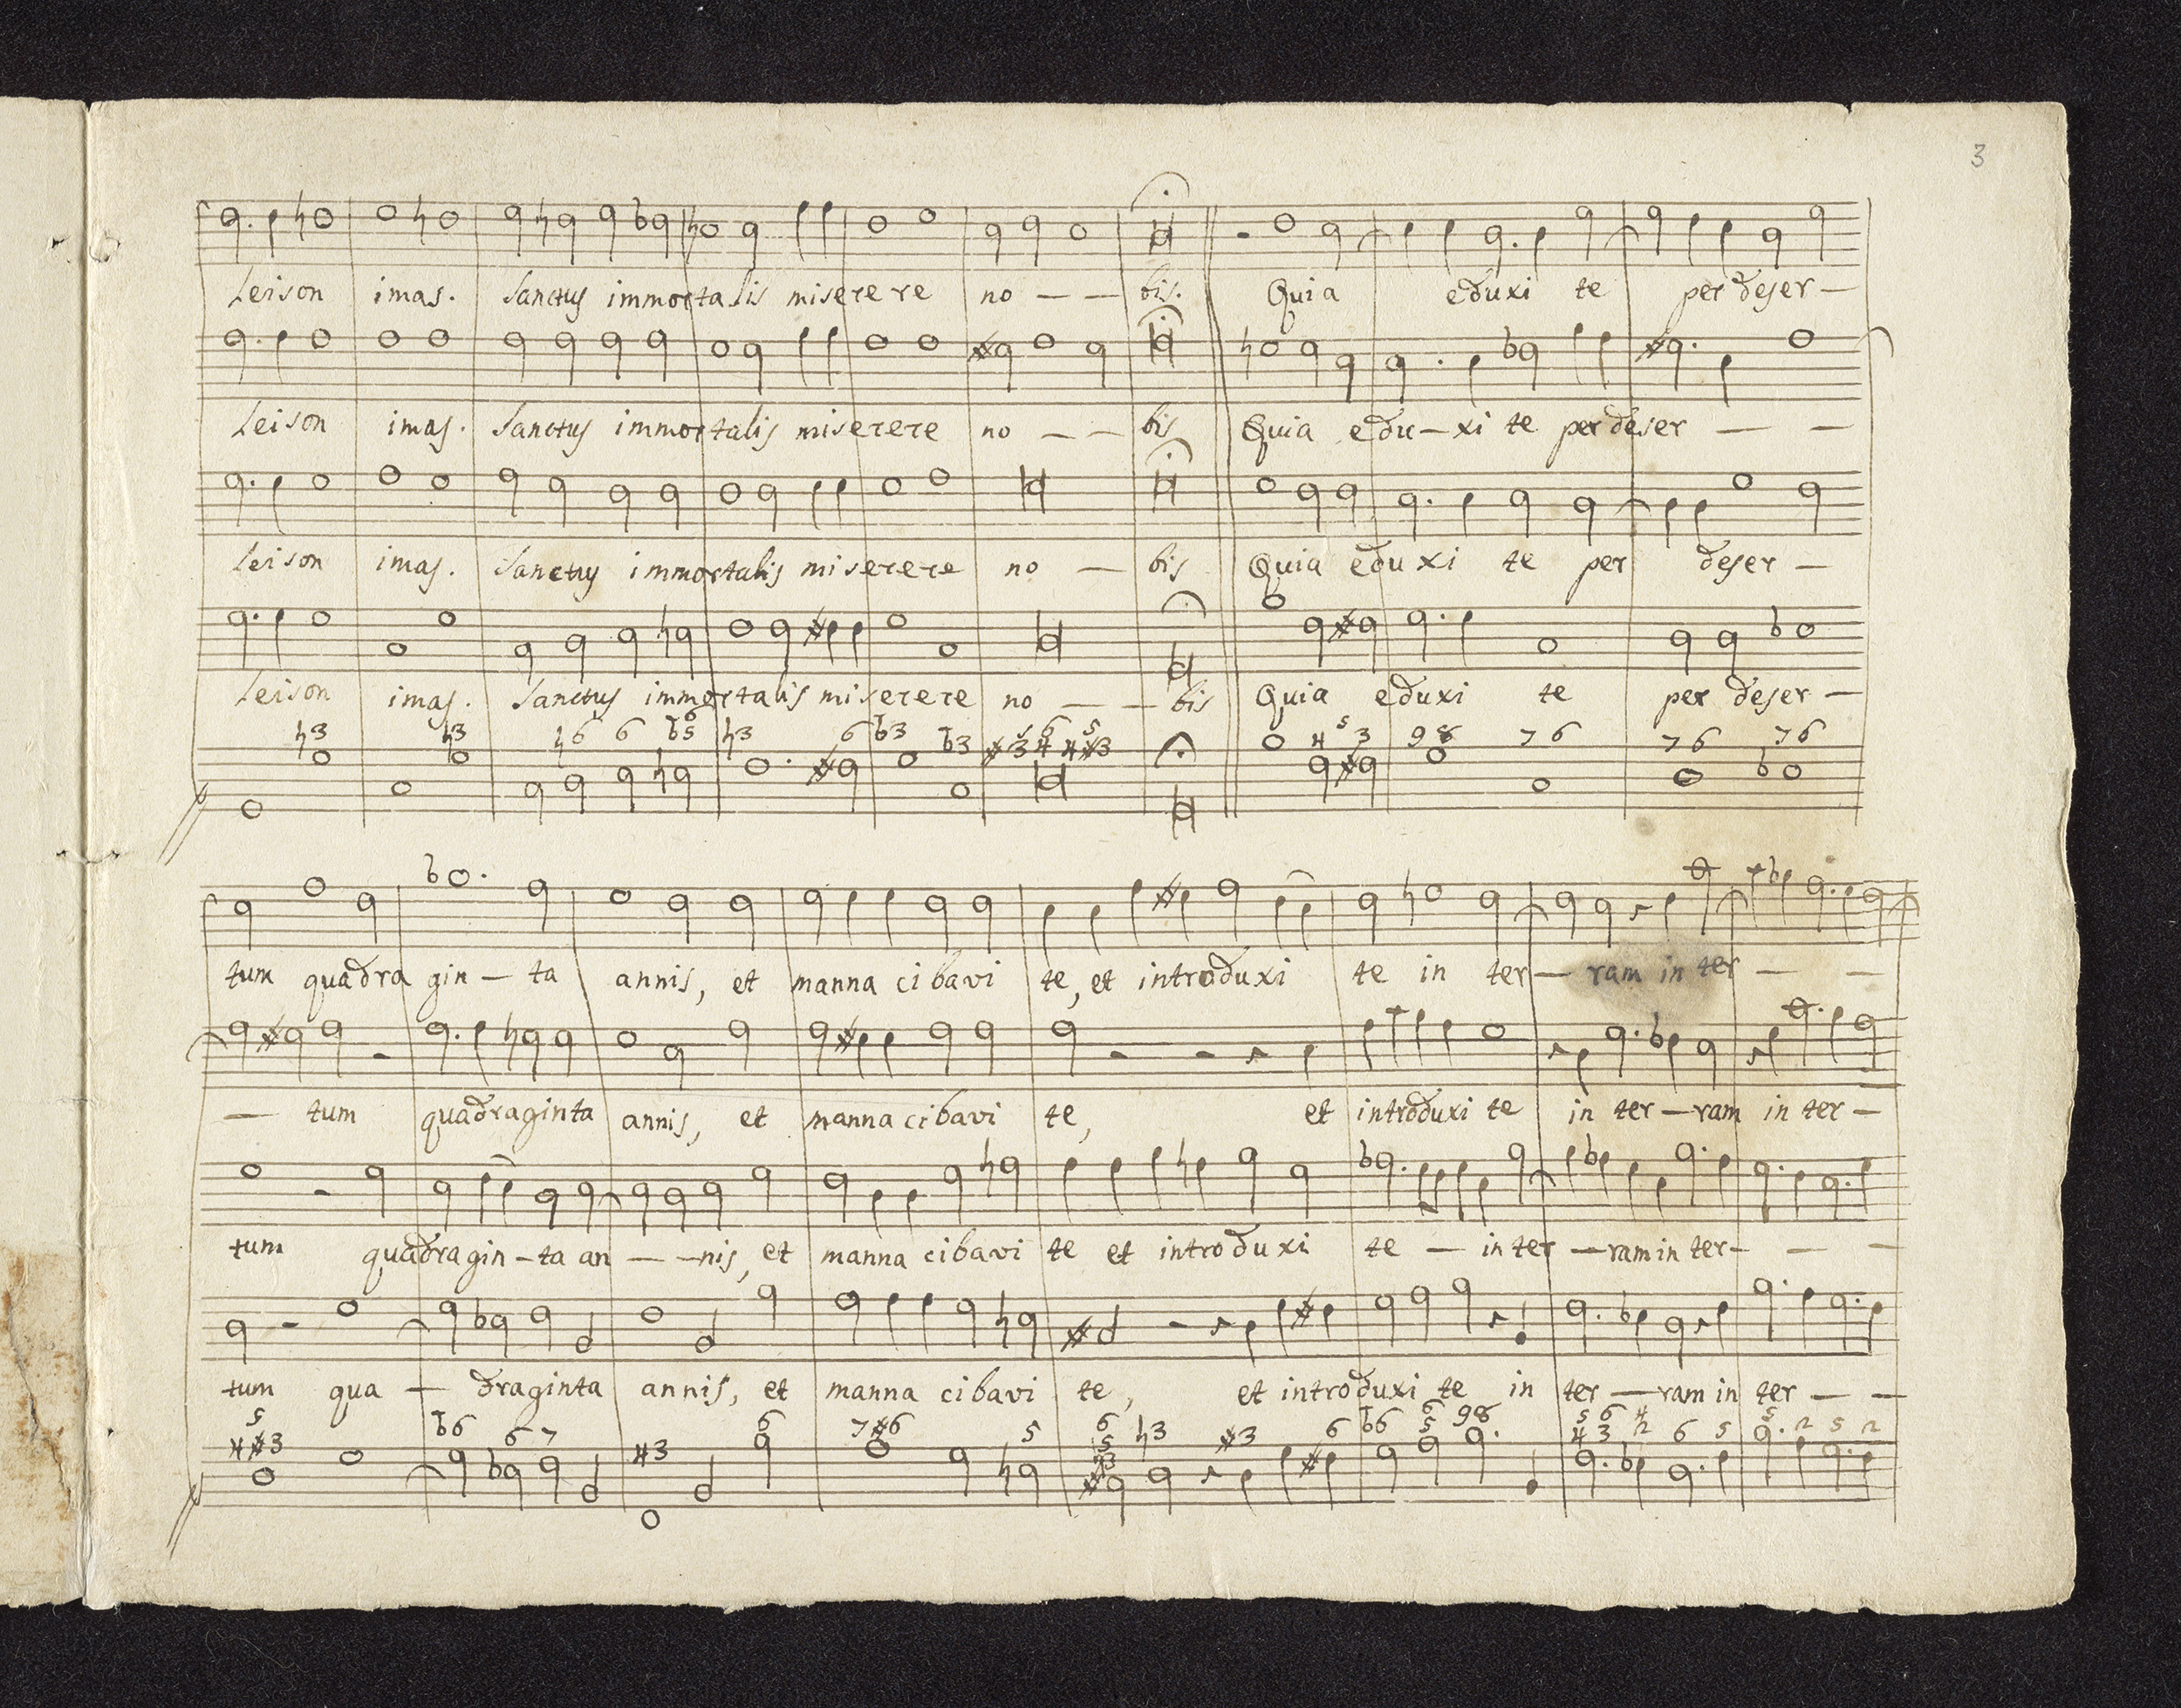 3
leison imas. Sanctus immortalis miserere no — — bis. Quia eduxi te per deser —
leison imas. Sanctus immortalis miserere no — — bis Quia edu — xi te per deser — —
leison imas. Sanctus immortalis miserere no — bis Quia eduxi te per deser —
leison imas. Sanctus immortalis miserere no — — bis Quia eduxi te per deser —
tum quadra gin — ta annis, et manna cibavi te, et introduxi te in ter — ram in ter — —
— tum quadraginta annis, et manna cibavi te, et introduxi te in ter — ram in ter —
tum quadragin — ta an — — nis, et manna cibavi te et introduxi te — in ter — ram in ter — — —
tum qua — draginta annis, et manna cibavi te, et introduxi te in ter — ram in ter — —